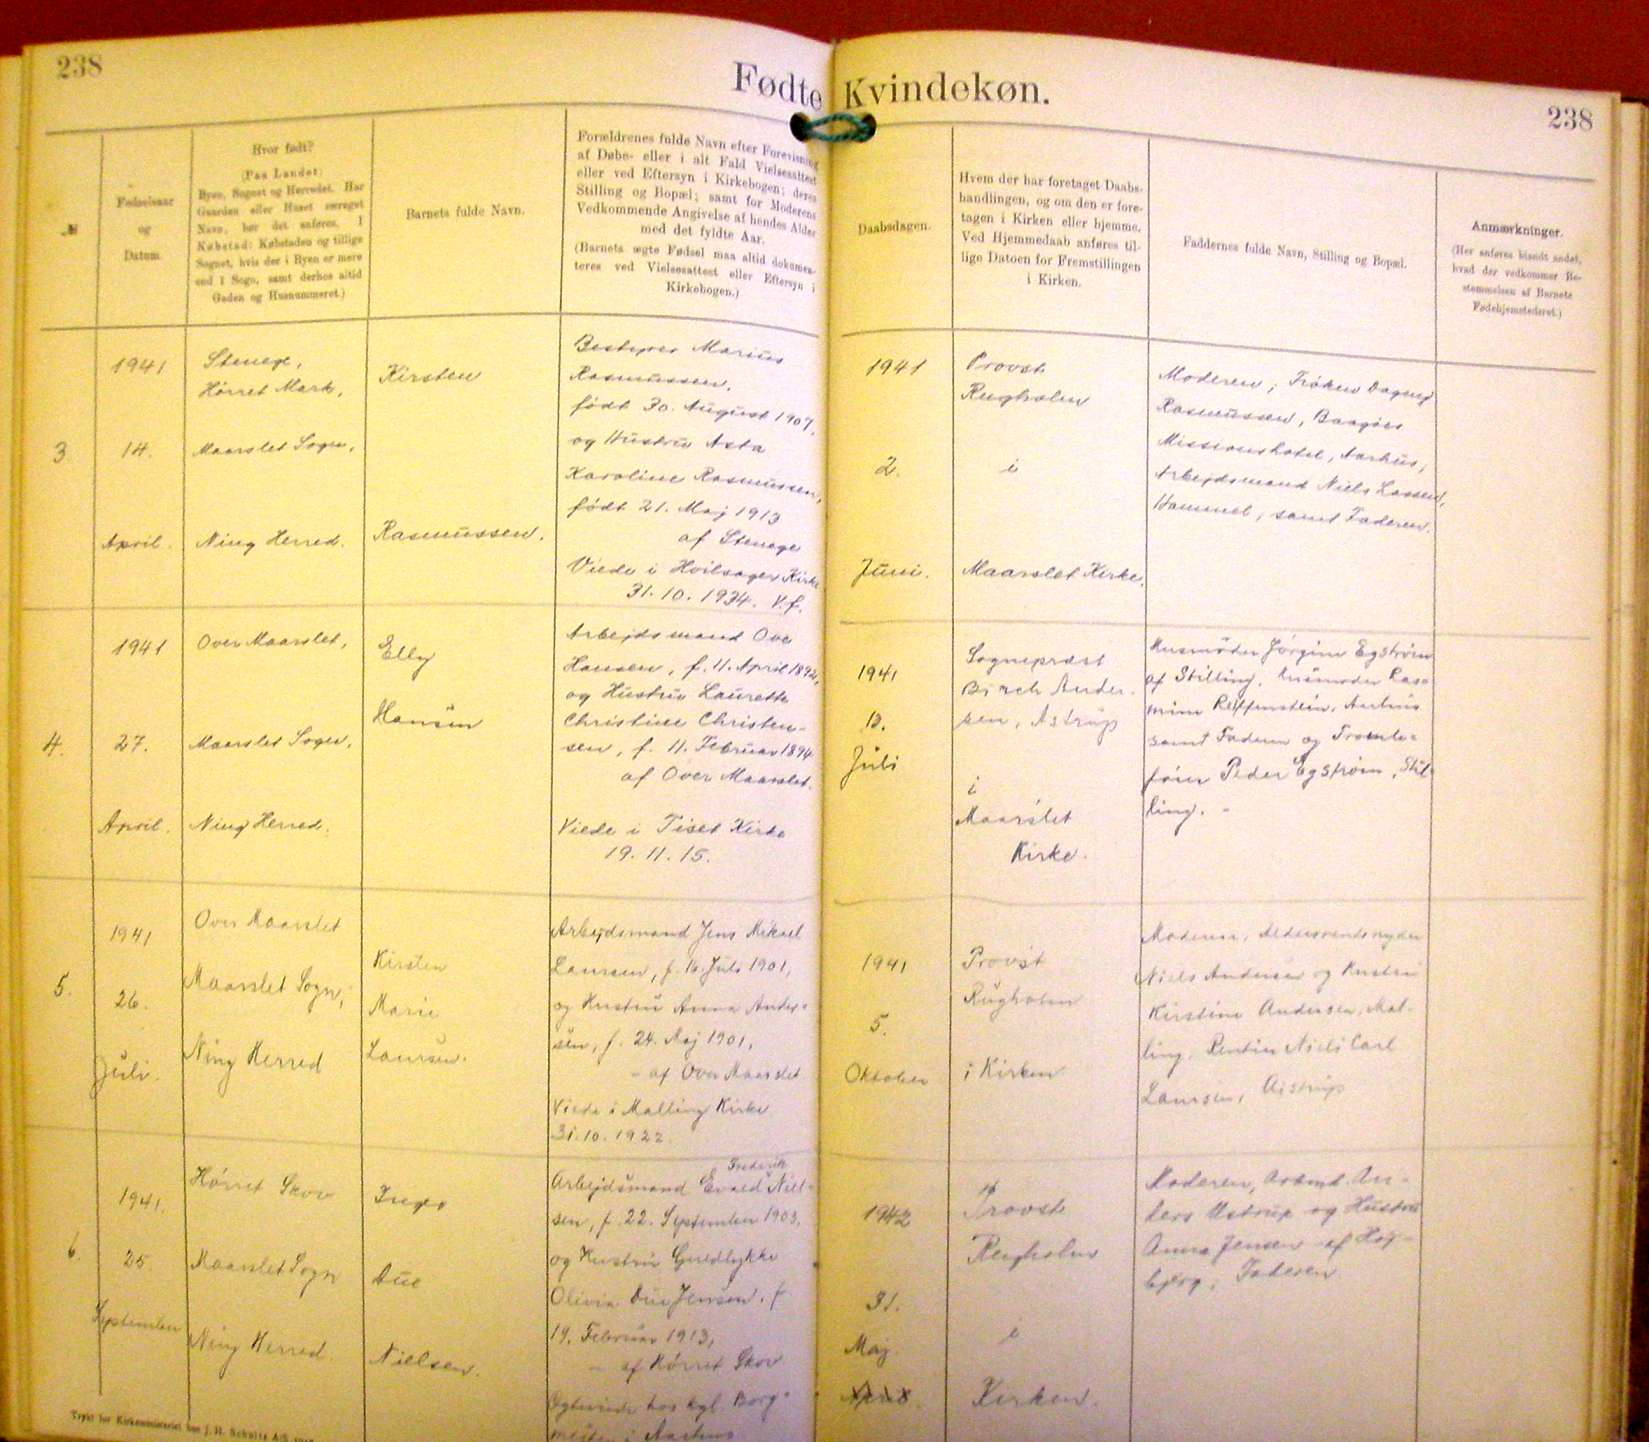 238
Fødte Kvindekøn.
238
№
Fødselsaar
og
Datum.
Hvor født?
(Paa Landet:
Byen, Sognet og Herredet. Har
Gaarden eller Huset særeget
Navn, bør det anføres. I
Købstad: Købstaden og tillige
Sognet, hvis der i Byen er mere
end 1 Sogn, samt derhos altid
Gaden og Husnummeret.)
Barnets fulde Navn.
Forældrenes fulde Navn efter Forevisning
af Døbe- eller i alt Fald Vielsesattest
eller ved Eftersyn i Kirkebogen; deres
Stilling og Bopæl; samt for Moderens
Vedkommende Angivelse af hendes Alder
med det fyldte Aar.
(Barnets ægte Fødsel maa altid dokumen-
teres ved Vielsesattest eller Eftersyn i
Kirkebogen.)
Daabsdagen.
Hvem der har foretaget Daabs-
handlingen, og om den er fore-
tagen i Kirken eller hjemme.
Ved Hjemmedaab anføres til-
lige Datoen for Fremstillingen
i Kirken.
Faddernes fulde Navn, Stilling og Bopæl.
Anmærkninger.
(Her anføres blandt andet,
hvad der vedkommer Be-
stemmelsen af Barnets
Fødehjemstederet.)
3
1941
14.
April.
Stenege,
Hørret Mark,
Maarslet Sogn,
Ning Herred.
Kirsten
Rasmussen.
Bestyrer Marius
Rasmussen,
født 30. August 1907,
og Hustru Asta
Karoline Rasmussen,
født 21. Maj 1913
af Stenege
Viede i Hvilsager Kirke
31.10.1934. V.f.
1941
2.
Juni.
Provst
Rugholm
i
Maarslet Kirke.
Moderen, Frøken Dagny
Rasmussen, Baagøes
Missionshotel, Aarhus,
Arbejdsmand Niels Lassen,
Hammel, samt Faderen.
4.
1941
27.
April.
Over Maarslet,
Maarslet Sogn,
Ning Herred.
Elly
Hansen
Arbejdsmand Ove
Hansen, f. 11. April 1892,
og Hustru Laurette
Christine Christen-
sen, f. 11. Februar 1894
af Over Maarslet.
Viede i Tiset Kirke
19.11.15.
1941
13.
Juli
Sognepræst
Birch Ander-
sen, Astrup
i
Maarslet
Kirke.
Husmoder Jørgine Egstrøm
af Stilling, Husmoder Ras-
mine Reffenstein, Aarhus
samt Faderen og
Peder Egstrøm, Stil-
ling. -
5.
1941
26.
Juli.
Over Maarslet
Maarslet Sogn,
Ning Herred
Kirsten
Marie
Laursen.
Arbejdsmand Jens Mikael
Laursen, f. 16. Juli 1901,
og Hustru Anna Ander-
sen, f. 24. Maj 1901,
- af Over Maarslet
Viede i Malling Kirke
31.10.1922.
1941
5.
Oktober
Provst
Rugholm
i Kirken
Moderen, Aldersrentenyder
Niels Andersen og Hustru
Kirstine Andersen, Mal-
ling, Rentier Niels Carl
Laursen, Astrup
6.
1941.
25.
September
Hørret Skov
Maarslet Sogn
Ning Herred.
Inger
Due
Nielsen.
Frederik
Arbejdsmand Evald Niel-
sen, f. 22. September 1903,
og Hustru Guldlykke
Olivia Due Jensen, f.
19. Februar 1913,
- af Hørret Skov
Ogteviede hos kgl. Borg-
mester i Aarhus
1942
31.
Maj.
April.
Provst
Rugholm
i
Kirken.
Moderen, Arbmd. An-
ders Ustrup og Hustru
Anna Jensen af Høj-
bjerg, Faderen
Trykt for Kirkeministeriet hos J. H. Schultz A/S